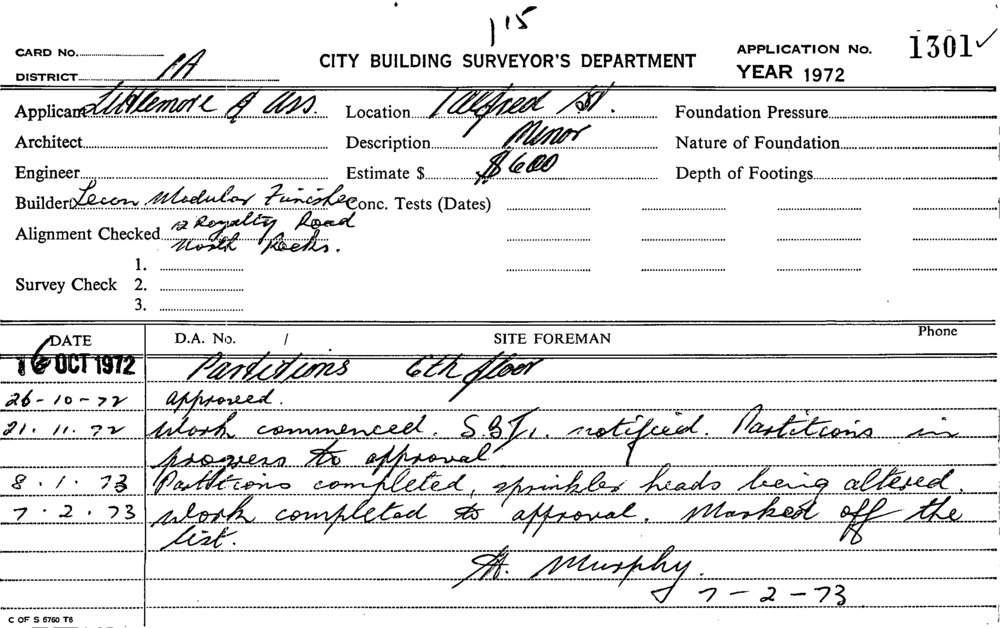 115
CARD No.
DISTRICT 1A
CITY BUILDING SURVEYOR'S DEPARTMENT
APPLICATION No. 1301 ✓
YEAR 1972
Applicant Littlemore & Ass.
Location 1 Alfred St.
Foundation Pressure
Architect
Description Minor
Nature of Foundation
Engineer
Estimate $ $600
Depth of Footings
Builder Modular
Conc. Tests (Dates)
Alignment Checked 2 Royalty Road
North Rocks.
Survey Check
1.
2.
3.
DATE
D.A. No. /
SITE FOREMAN
Phone
16 OCT 1972 Partitions 6th floor
26-10-72 approved.
21.11.72 Work commenced. notified. Partitions in
progress to approval
8.1.73 Partitions completed, sprinkler heads being altered.
7.2.73 Work completed to approval. Marked off the
list.
Murphy.
7-2-73
C OF S 6760 T6